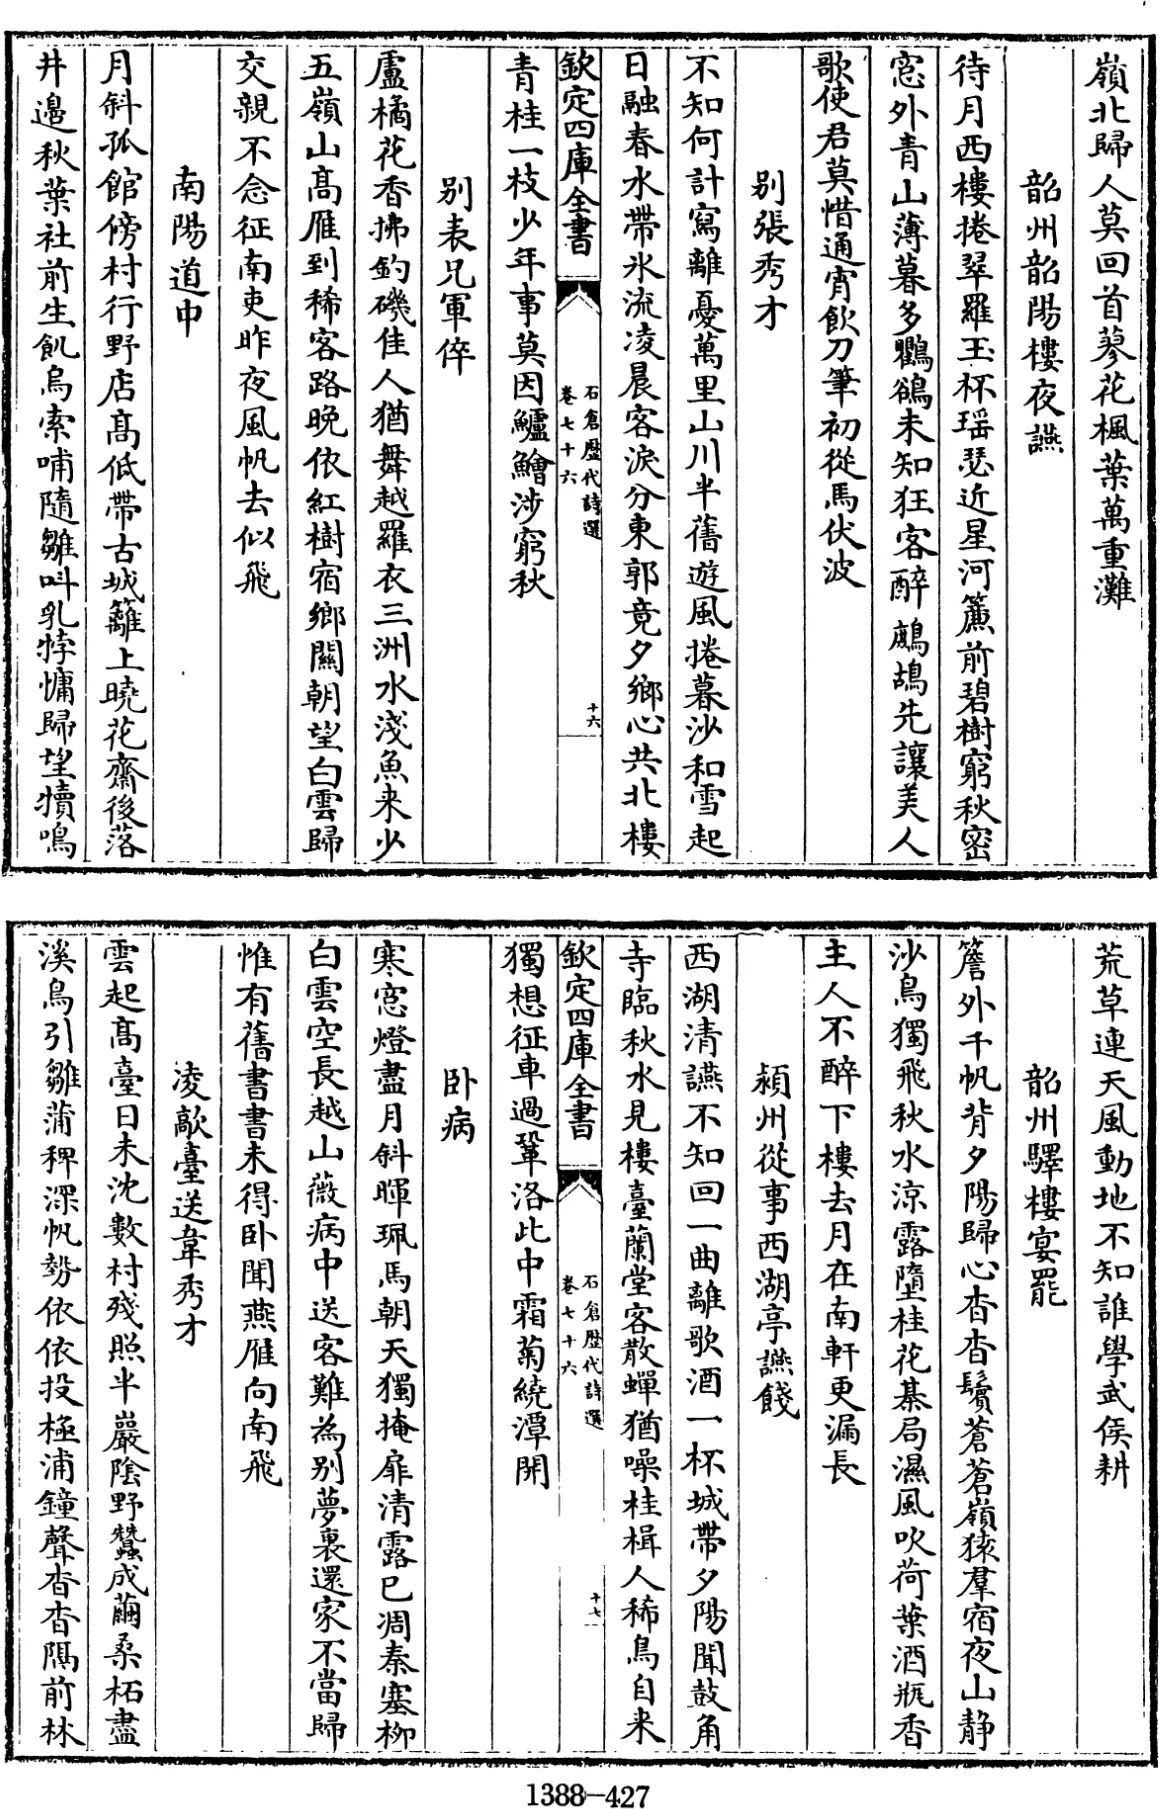 嶺北歸人莫回首蓼花楓葉萬重灘
韶州韶陽樓夜讌
待月西樓捲翠羅玉杯瑶瑟近星河簾前碧樹窮秋密
窓外青山薄暮多鸜鵒未知狂客醉鷓鴣先讓美人
歌使君莫惜通宵飲刀筆初從馬伏波
别張秀才
不知何計寫離憂萬里山川半舊遊風捲暮沙和雪起
日融春水帶氷流凌晨客淚分東郭竟夕鄉心共北樓
青桂一枝少年事莫因鱸鱠涉窮秋
欽定四庫全書
石倉歷代詩選
卷七十六
十六
别表兄軍倅
盧橘花香拂釣磯佳人猶舞越羅衣三洲水淺魚来少
五嶺山髙雁到稀客路晚依紅樹宿鄉關朝望白雲歸
交親不念征南吏昨夜風帆去似飛
南陽道中
月斜孤館傍村行野店髙低帶古城籬上曉花齋後落
井邉秋葉社前生飢烏索哺隨雛呌乳牸慵歸望犢鳴
荒草連天風動地不知誰學武侯耕
韶州驛樓宴罷
簷外千帆背夕陽歸心杳杳鬢蒼蒼嶺猿羣宿夜山静
沙鳥獨飛秋水凉露墮桂花棊局濕風吹荷葉酒瓶香
主人不醉下樓去月在南軒更漏長
潁州從事西湖亭讌餞
西湖清讌不知回一曲離歌酒一杯城帶夕陽聞鼓角
寺臨秋水見樓臺蘭堂客散蟬猶噪桂楫人稀鳥自来
獨想征車過鞏洛此中霜菊繞潭開
欽定四庫全書
石倉歷代詩選
卷七十六
十七
卧病
寒窓燈盡月斜暉珮馬朝天獨掩扉清露已凋秦塞柳
白雲空長越山薇病中送客難為别夢裏還家不當歸
惟有舊書書未得卧聞燕雁向南飛
凌歊臺送韋秀才
雲起髙臺日未沈數村殘照半巖陰野蠶成繭桑柘盡
溪鳥引雛蒲稗深帆勢依依投極浦鐘聲杳杳隔前林
1388-427